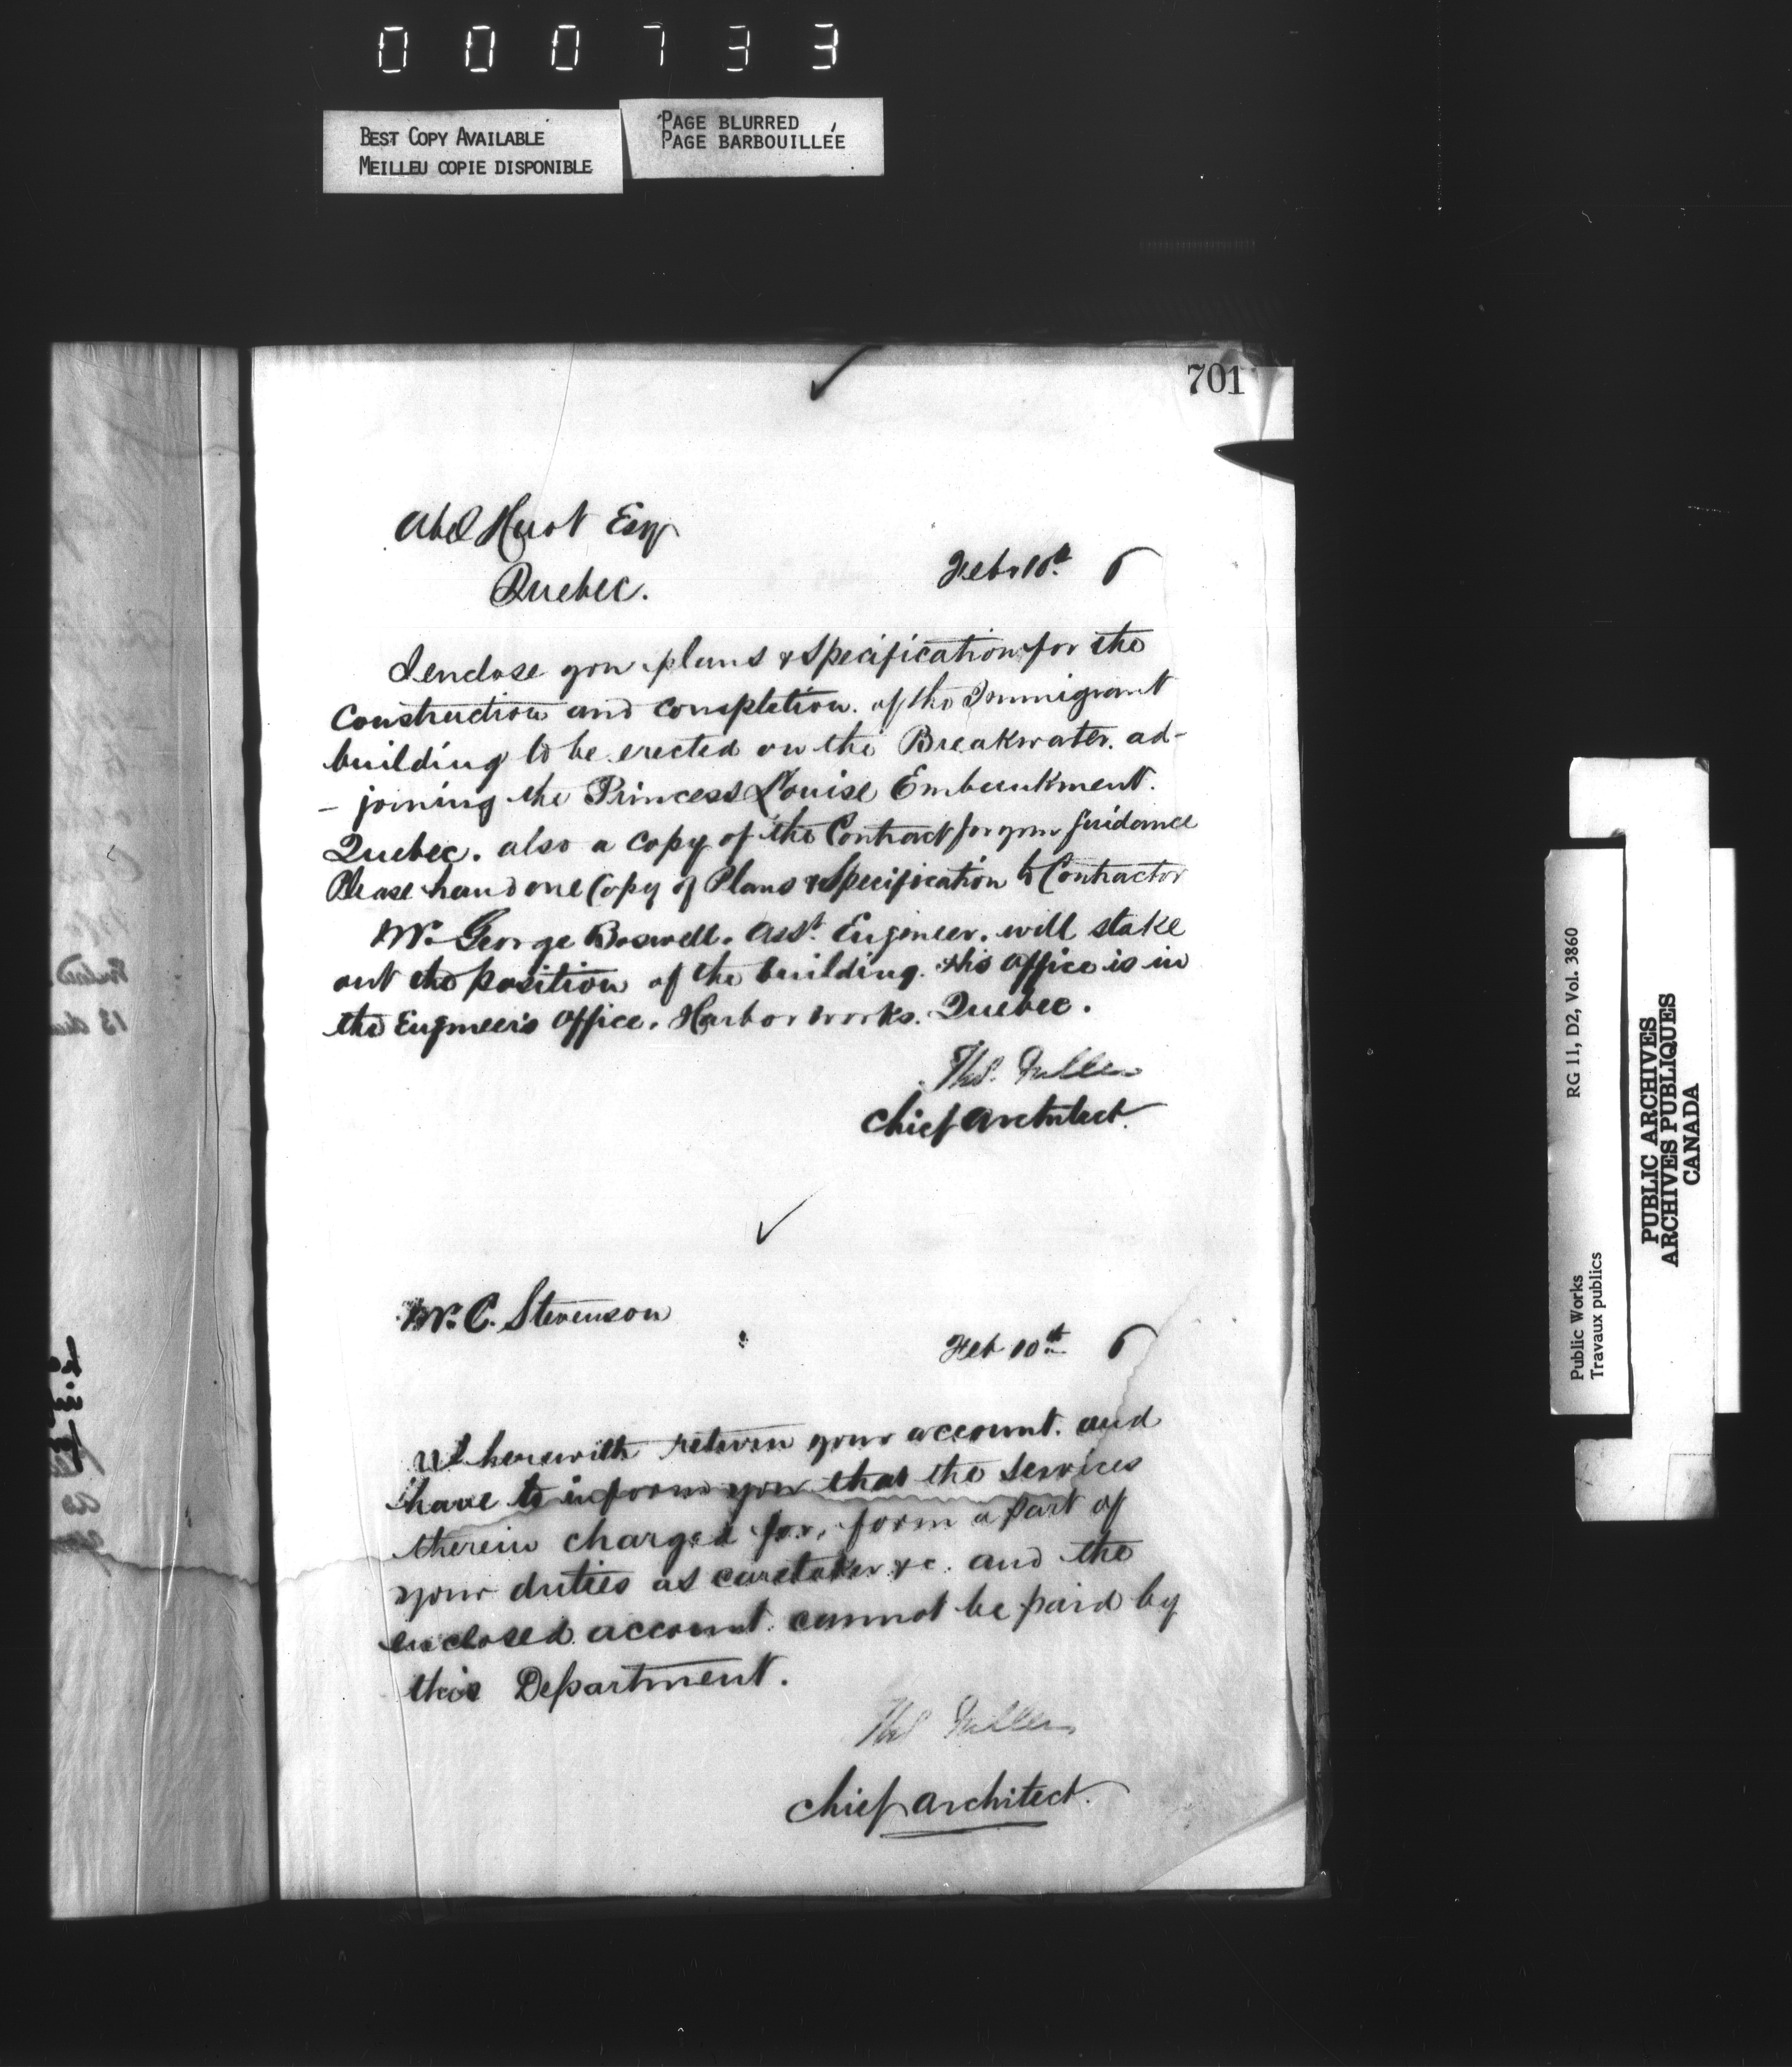 000733
BEST COPY AVAILABLE
MEILLEU COPIE DISPONIBLE
PAGE BLURRED
PAGE BARBOUILLÉE
701
Abel Huot Esq
Feb 10th. 6
Quebec.
I enclose you plans & specification for the
construction and completion. of the Immigrant
building to be erected on the Breakwater. ad-
- joining the Princess Louise Embankment.
Quebec. also a copy of the Contract for your guidance
Please hand one Copy of Plans & Specification to Contractor
Mr. George Boswell. Asst. Engineer. will stake
out the position of the building. His office is in
the Engineers Office. Harbor Works. Quebec.
Thos. Fuller
Chief Architect.
Mr. C. Stevenson
Feb 10th 6
I herewith return your account. and
have to inform you that the services
therein charged for, form a part of
your duties as caretaker &c. and the
enclosed account cannot be paid by
this Department.
Thos Fuller
Chief Architect.
RG 11, D2, Vol. 3860
Public Works
Travaux publics
PUBLIC ARCHIVES
ARCHIVES PUBLIQUES
CANADA